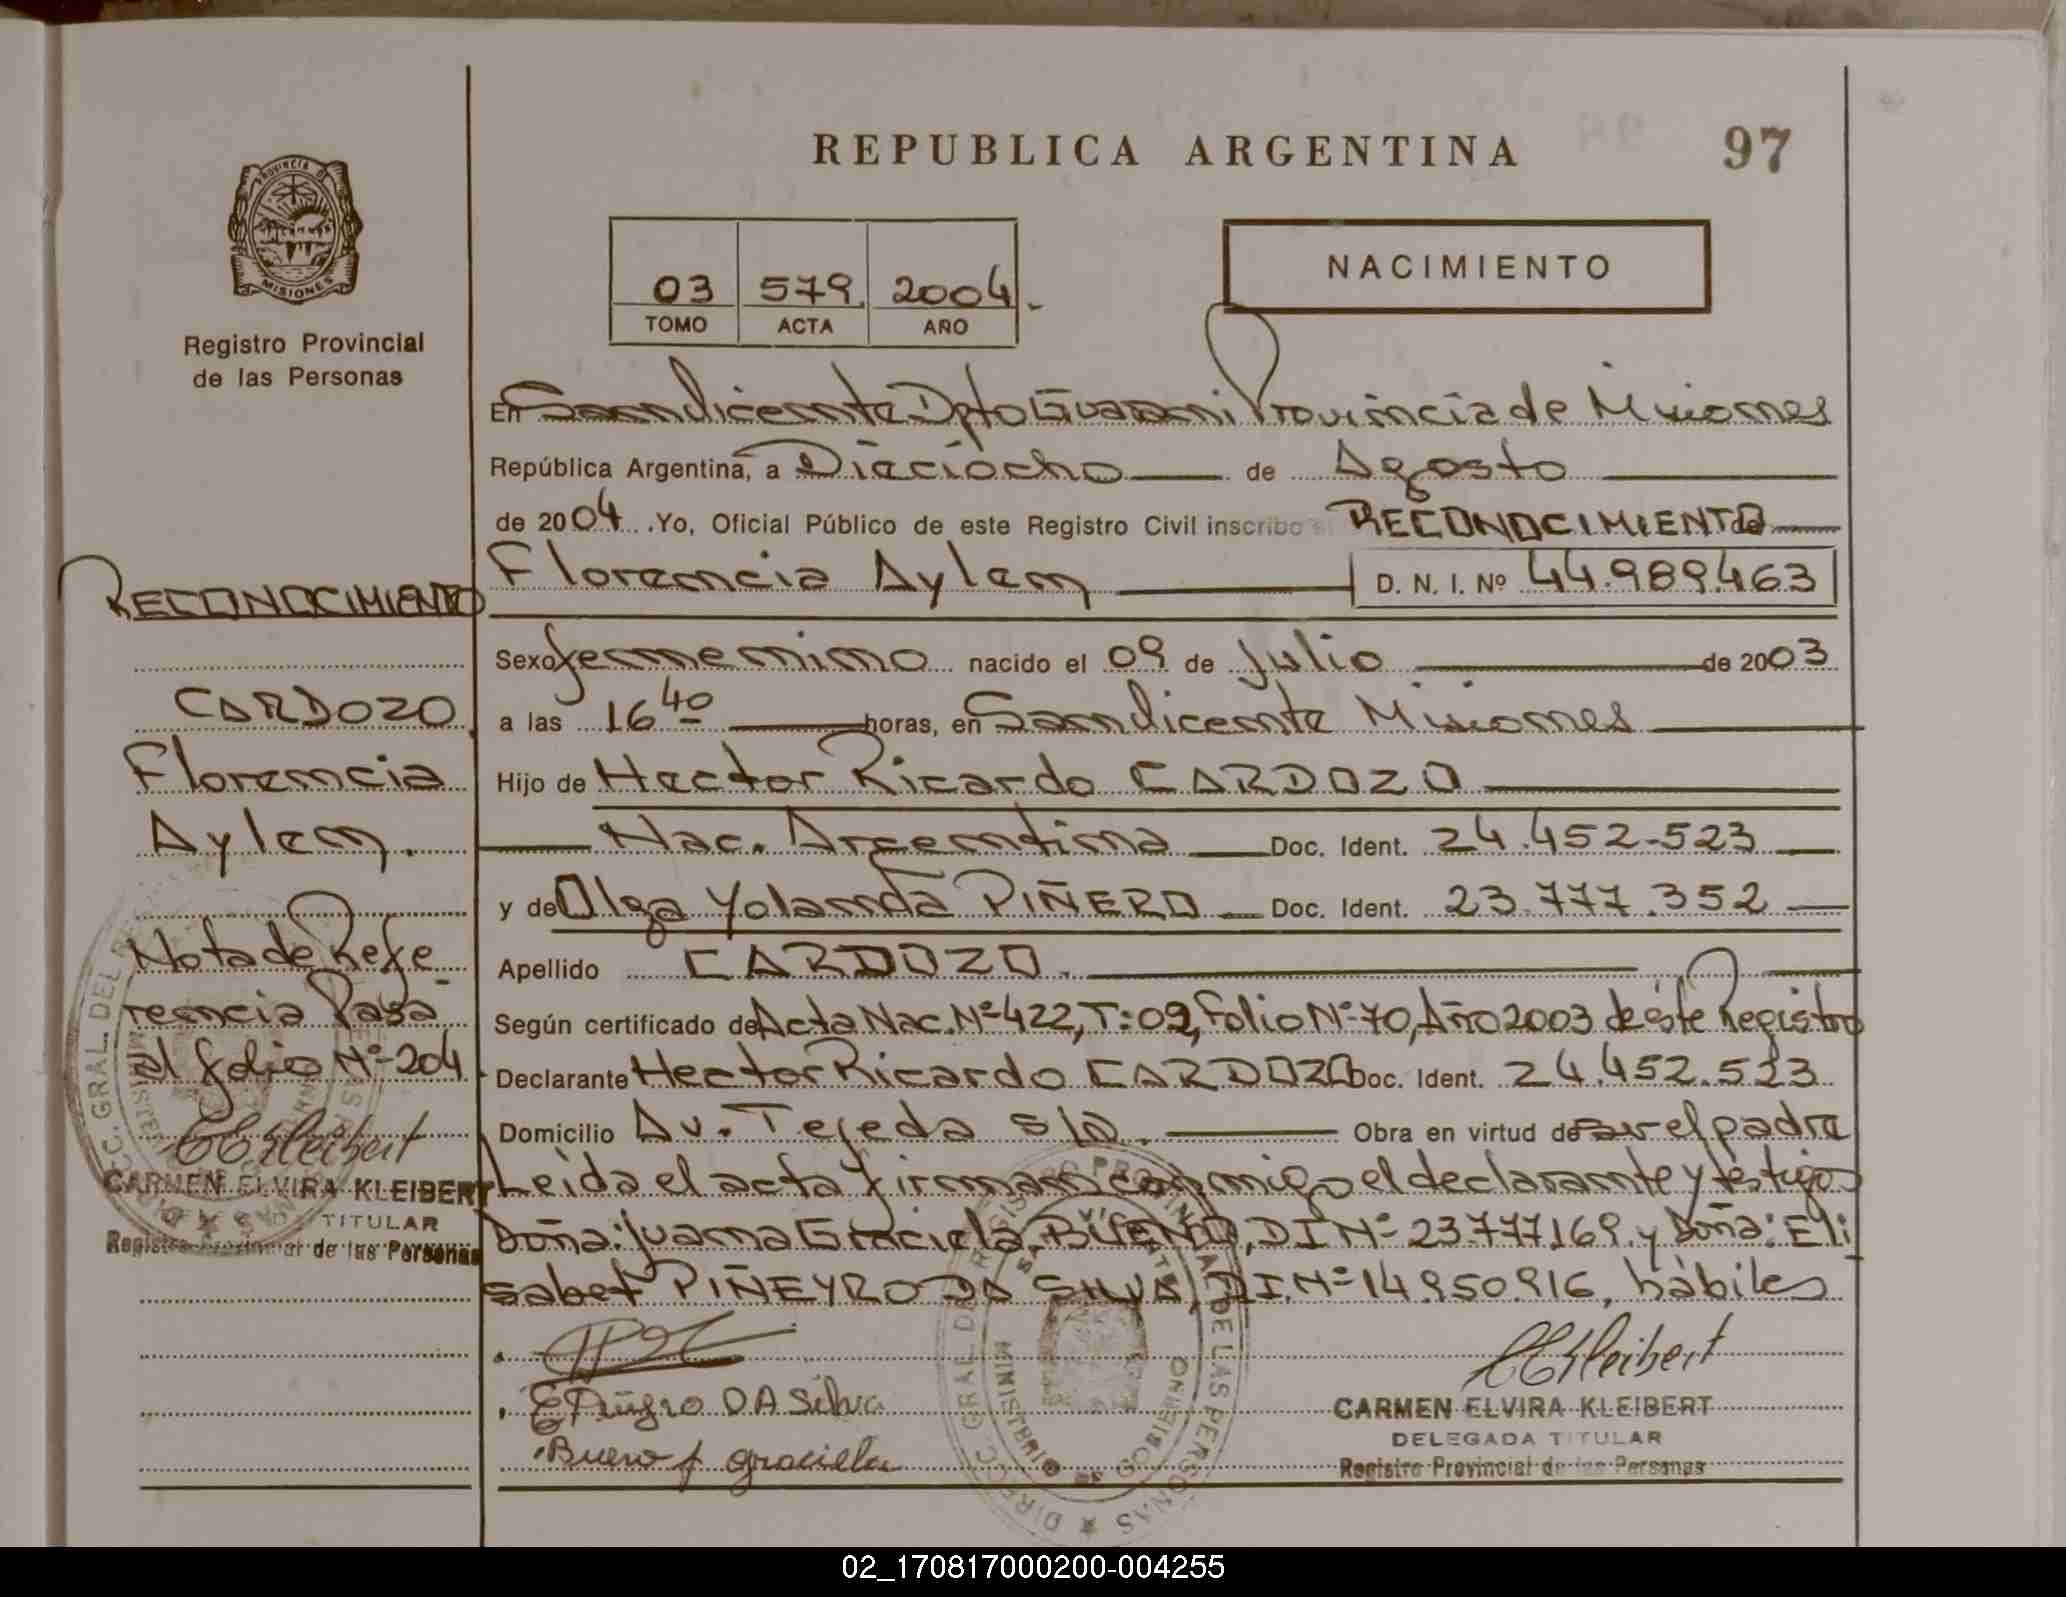 REPUBLICA ARGENTINA
97
PROVINCIA DE MISIONES
Registro Provincial
de las Personas
03 579 2004
TOMO ACTA AÑO
NACIMIENTO
En San Vicente Dpto Guarani Provincia de Misiones
República Argentina, a Dieciocho de Agosto
de 2004 Yo, Oficial Público de este Registro Civil inscribo el RECONOCIMIENTO de
Florencia Aylen D. N. I. Nº 44.989.463
Sexo femenino nacido el 09 de Julio de 2003
a las 16 40 horas, en San Vicente Misiones
Hijo de Hector Ricardo CARDOZO
Nac. Argentina Doc. Ident. 24.452.523
y de Olga Yolanda PIÑERO Doc. Ident. 23.777.352
Apellido CARDOZO
Según certificado de Acta Nac. Nº 422, T: 02, Folio Nº 70, Año 2003 de éste Registro
Declarante Hector Ricardo CARDOZO Doc. Ident. 24.452.523
Domicilio Av. Tejeda s/n. Obra en virtud de ser el padre
Leída el acta firman conmigo el declarante y testigos
Doña: Juana Graciela BUENO, DI Nº 23.777.169 y Doña: Eli
sabet PIÑEYRO DA SILVA, DI. Nº 14.950.916, hábiles
E Piñeyro DA Silva
Bueno J graciela
CEKleibert
CARMEN ELVIRA KLEIBERT
DELEGADA TITULAR
Registro Provincial de las Personas
RECONOCIMIENTO
CARDOZO
Florencia
Aylen.
Nota de Refe
rencia Pasa
al folio Nº 204
CEKleibert
CARMEN ELVIRA KLEIBERT
TITULAR
Registro Provincial de las Personas
DIRECC. GRAL. DEL REGISTRO PROVINCIAL DE LAS PERSONAS
MINISTERIO DE GOBIERNO
02_170817000200-004255